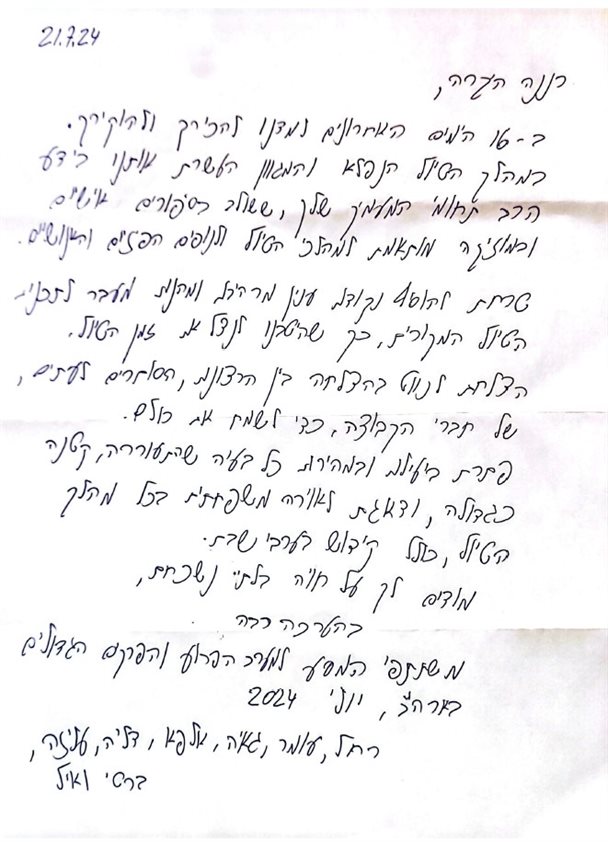 21.7.24
רננה היקרה,
ב-16 הימים האחרונים למדנו להכירך ולהוקירך.
במהלך הטיול הנפלא והמגוון העשרת אותנו בידע
הרב תחומי המעמיק שלך, ששולב בסיפורים אישיים
ובמוזיקה מותאמת למהלכי הטיול ולנופים הפיזיים והאנושיים.
טרחת להוסיף נקודות ענין מרהיבות ומהנות מעבר לתכנית
הטיול המקורית, כך שהיטבנו לנצל את זמן הטיול.
הצלחת לנווט בהצלחה בין הרצונות, הסותרים לעתים,
של חברי הקבוצה, כדי לשמח את כולם.
פתרת ביעילות ובמהירות כל בעיה שהתעוררה, קטנה
כגדולה, ודאגת לאוירה משפחתית בכל מהלך
הטיול, כולל קידוש בערבי שבת.
מודים לך על חויה בלתי נשכחת,
בהערכה רבה
משתתפי המסע למערב הפרוע והפרקים הגדולים
בארה"ב, יולי 2024
רחל, עומר, גאיה, אלפא, דליה, עליזה,
ברטי ואיל